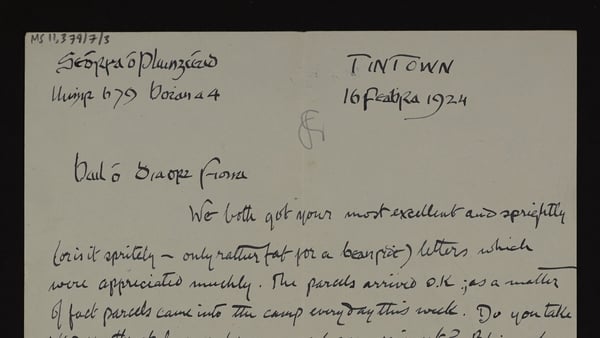 MS 11,379/7/3
Seórsa ó Pluingcéad
TINTOWN
Uimhir 679 Botán a 4
16 Feabra 1924
We both got your most excellent and sprightly
(or is it spritely – only rather fat for a ) letters which
were appreciated muchly. The parcels arrived O.K.; as a matter
of fact parcels came into the camp everyday this week. Do you take